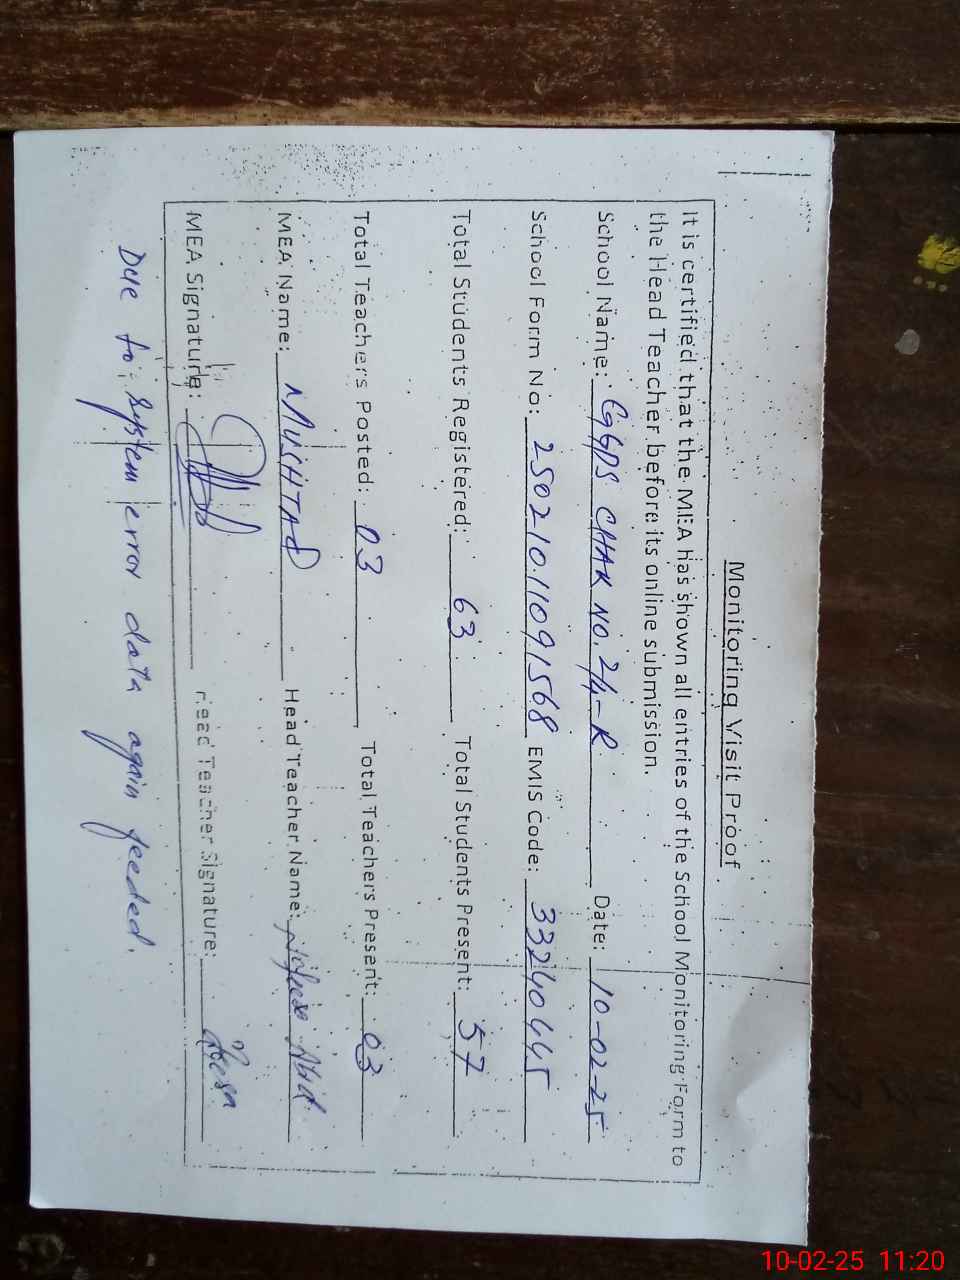 Monitoring Visit Proof
It is certified that the MEA has shown all entries of the School Monitoring Form to
the Head Teacher before its online submission.
School Name: GGPS CHAK NO. 2/4-R Date: 10-02-25
School Form No: 25021011091568 EMIS Code: 33240445
Total Students Registered: 63 Total Students Present: 57
Total Teachers Posted: 03 Total Teachers Present: 03
MEA Name: MUSHTAQ Head Teacher Name: Abid
MEA Signature: Head Teacher Signature:
Due to system error data again feeded.
10-02-25 11:20